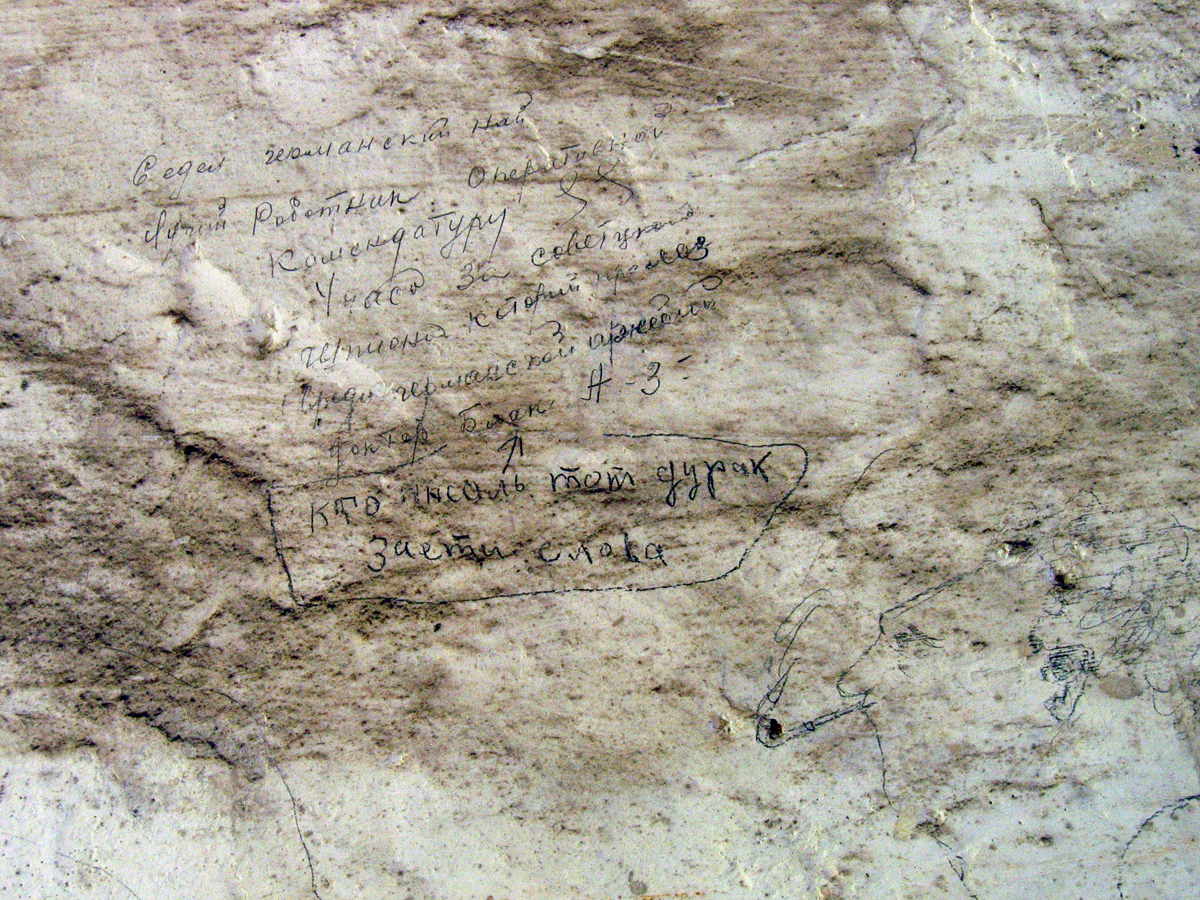 Седел германский най
лучий Работник Оперативной
Комендатуру
Унасо За советцкого
Шпиона которий пролаз
среди германской
Доктор Блек А-3-
кто писаль тот дурак
Заети слова